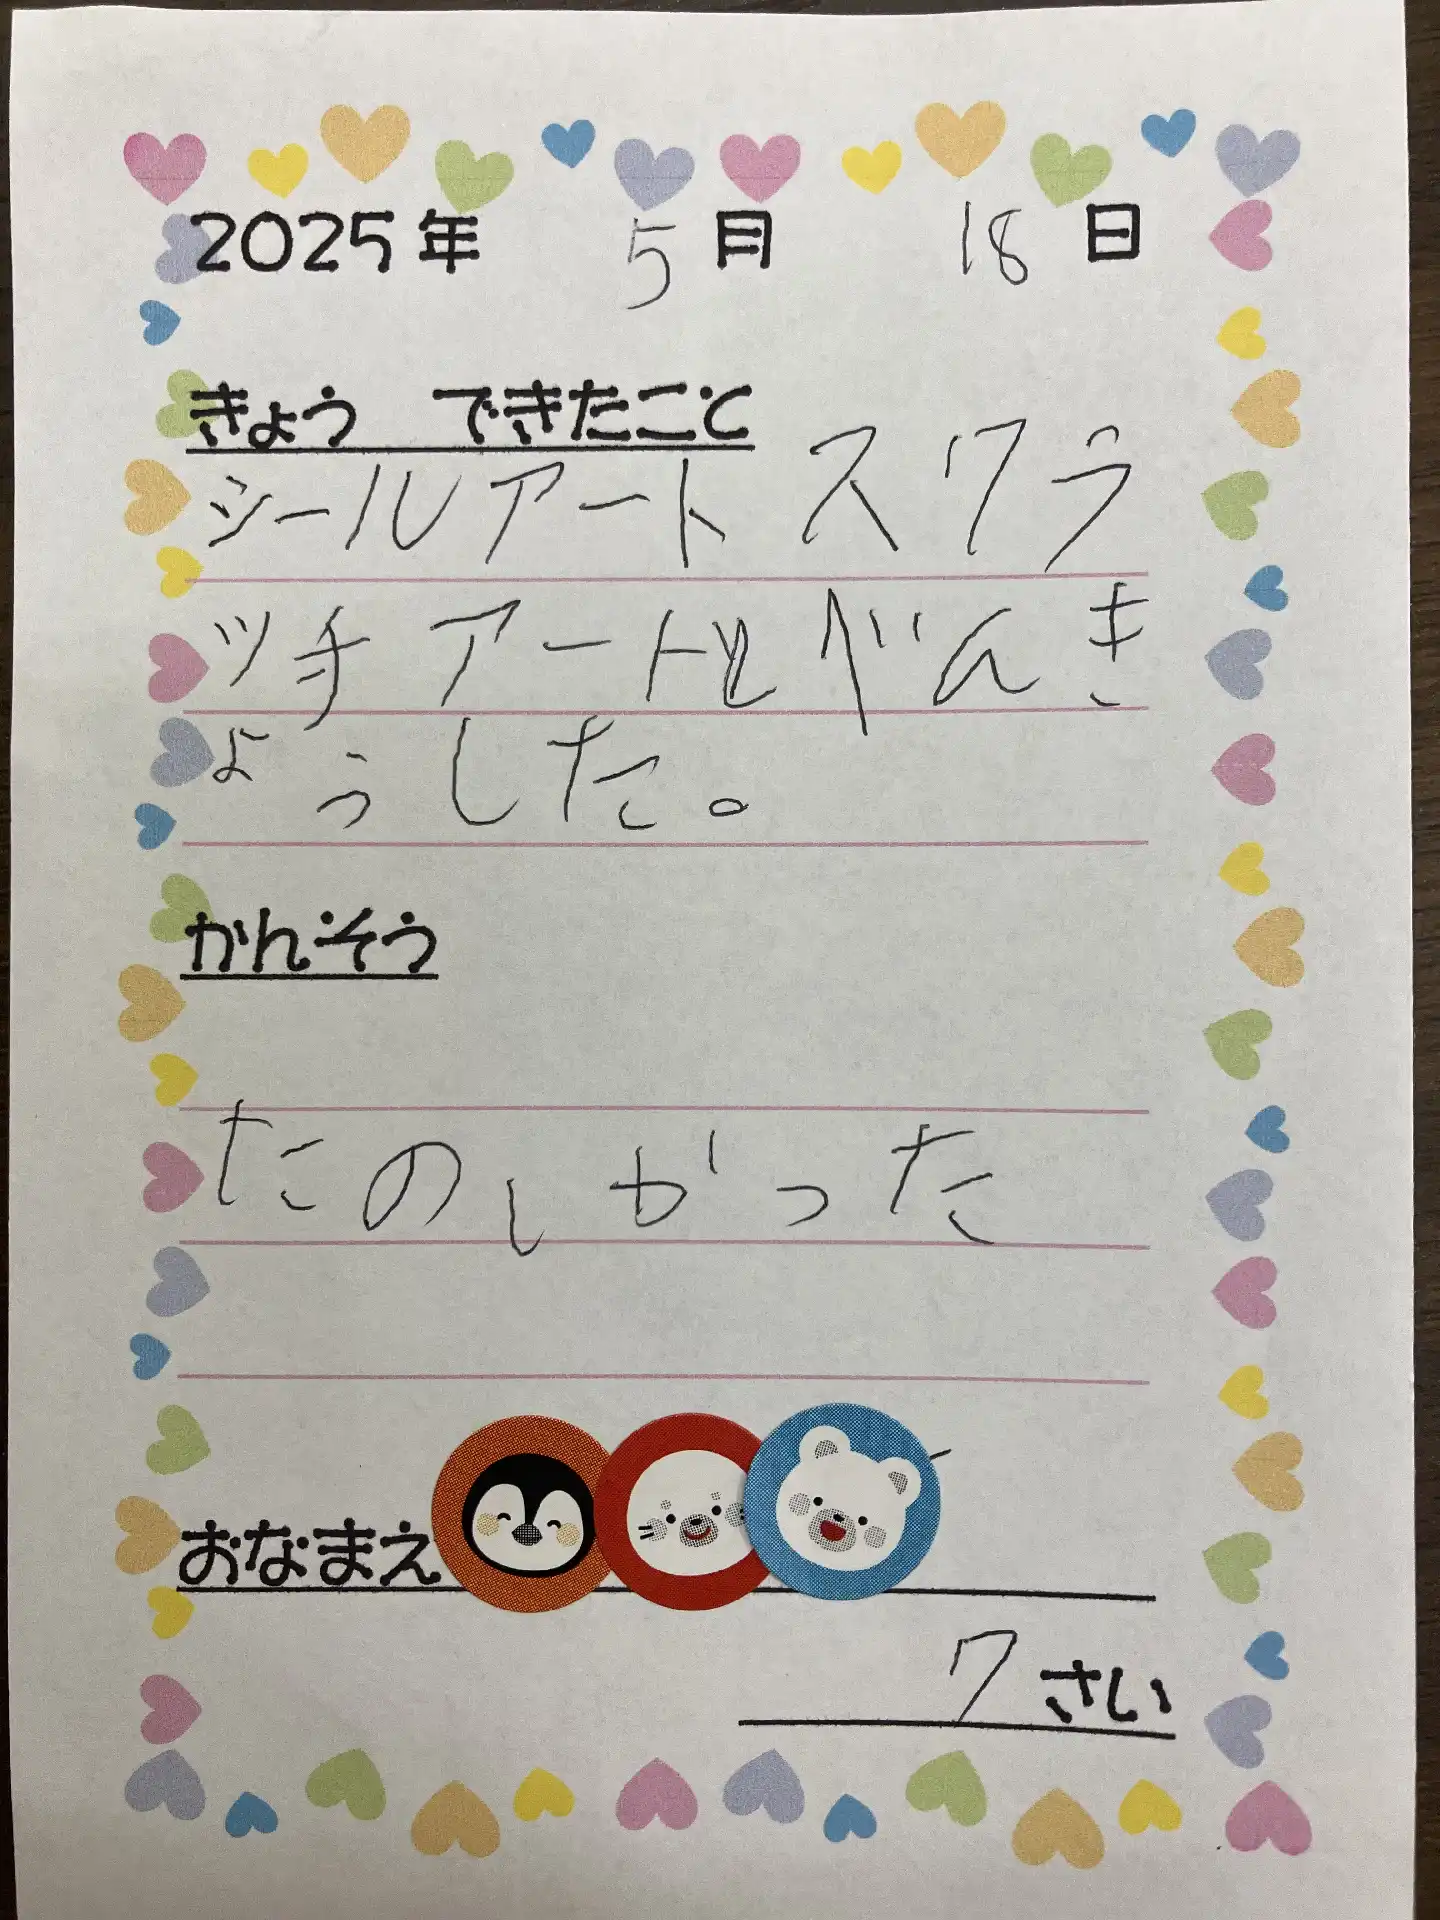 2025年 5月 18日
きょう できたこと
シールアート スクラ
ッチアートとべんき
ょうした。
かんそう
たのしかった
おなまえ
7さい